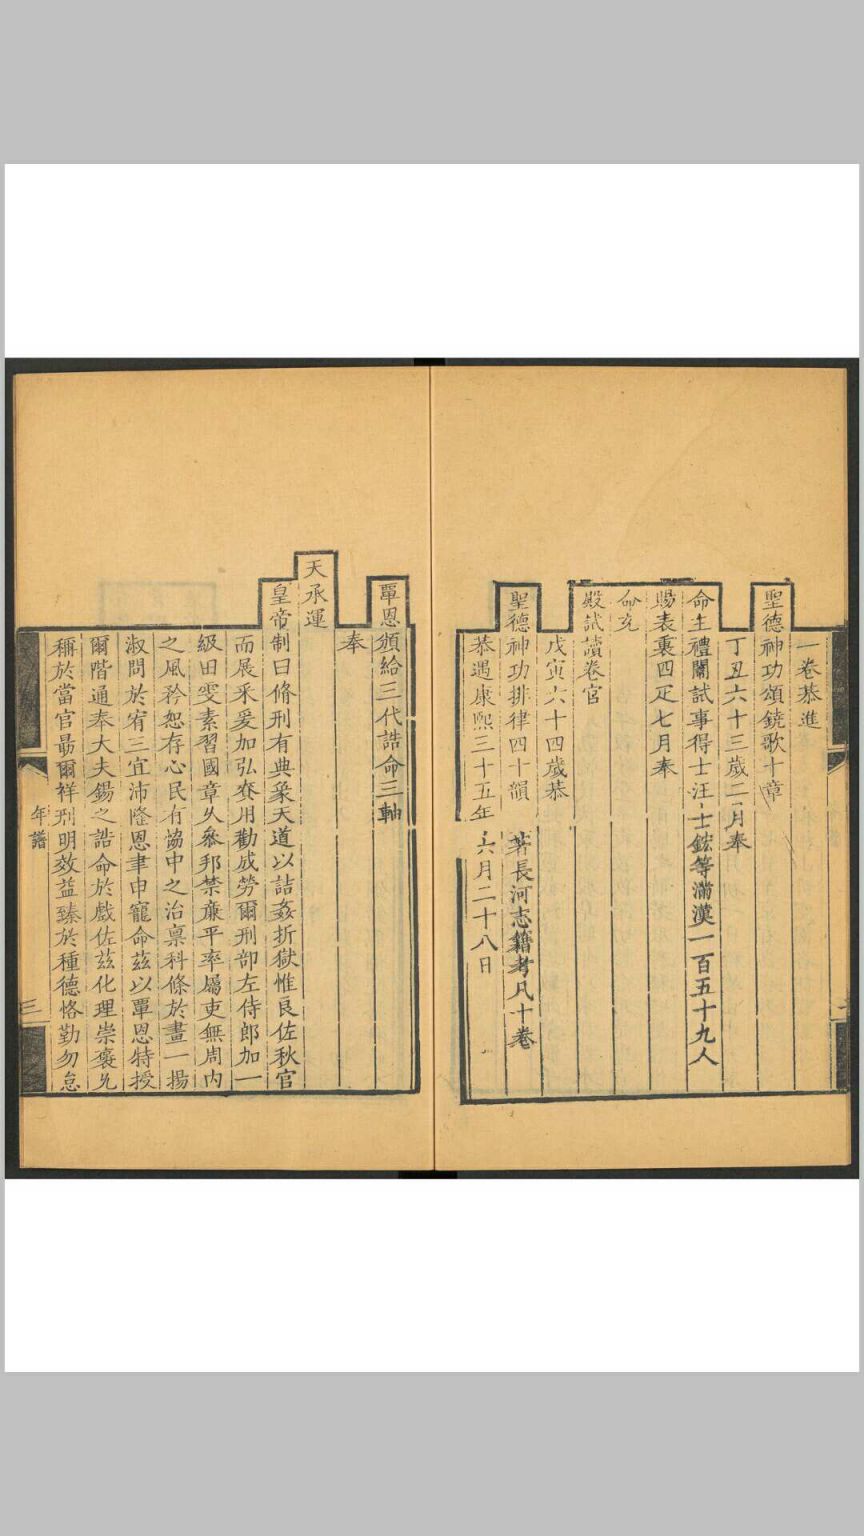 一卷恭進
聖德神功頌鐃歌十章
丁丑六十三歲二月奉
命主禮闈試事得士汪士鋐等滿漢一百五十九人
賜表裏四疋七月奉
命充
殿試讀卷官
戊寅六十四歲恭
聖德神功排律四十韻 著長河志籍考凡十卷
恭遇康熙三十五年六月二十八日
覃恩頒給三代誥命三軸
奉
天承運
皇帝制曰脩刑有典象天道以詰姦折獄惟良佐秋官
而展采爰加弘賚用勸成勞爾刑部左侍郎加一
級田雯素習國章久叅邦禁亷平率屬吏無周内
之風矜恕存心民有協中之治稟科條於畫一揚
淑問於宥三宜沛隆恩聿申寵命茲以覃恩特授
爾階通奉大夫錫之誥命於戲佐茲化理崇褒允
稱於當官勗爾祥刑明效益臻於種德恪勤勿怠
年譜
三